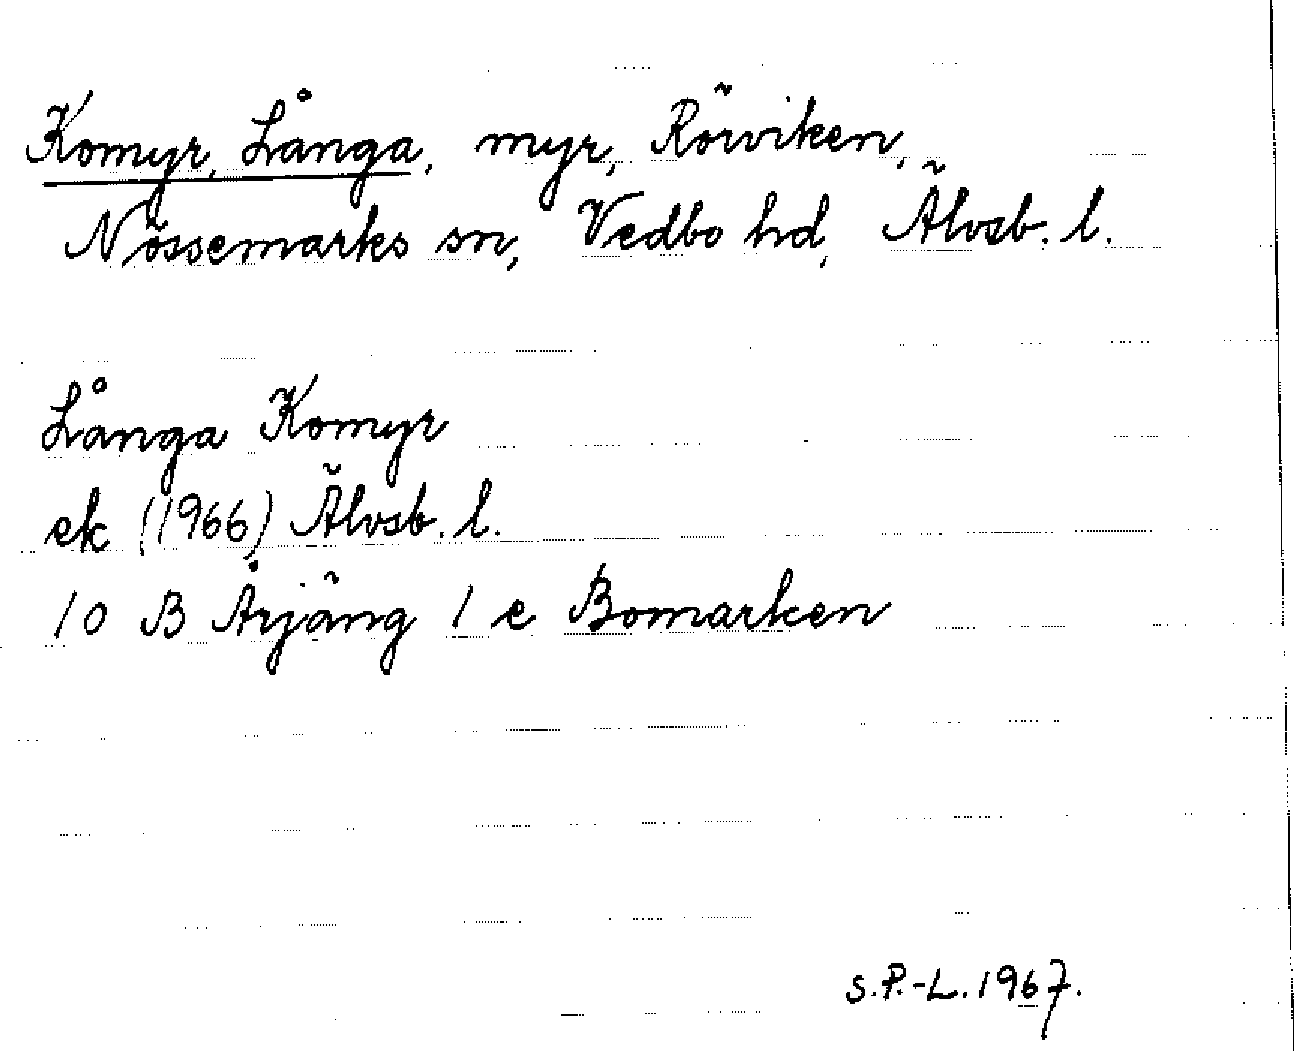 Komyr, Långa, myr, Rörviken,
Nössemarks sn, Vedbo hd, Älvsb. l.
Långa Komyr
ek (1966) Älvsb. l.
10 B Årjäng 1 e Bomarken
S.P.-L. 1967.